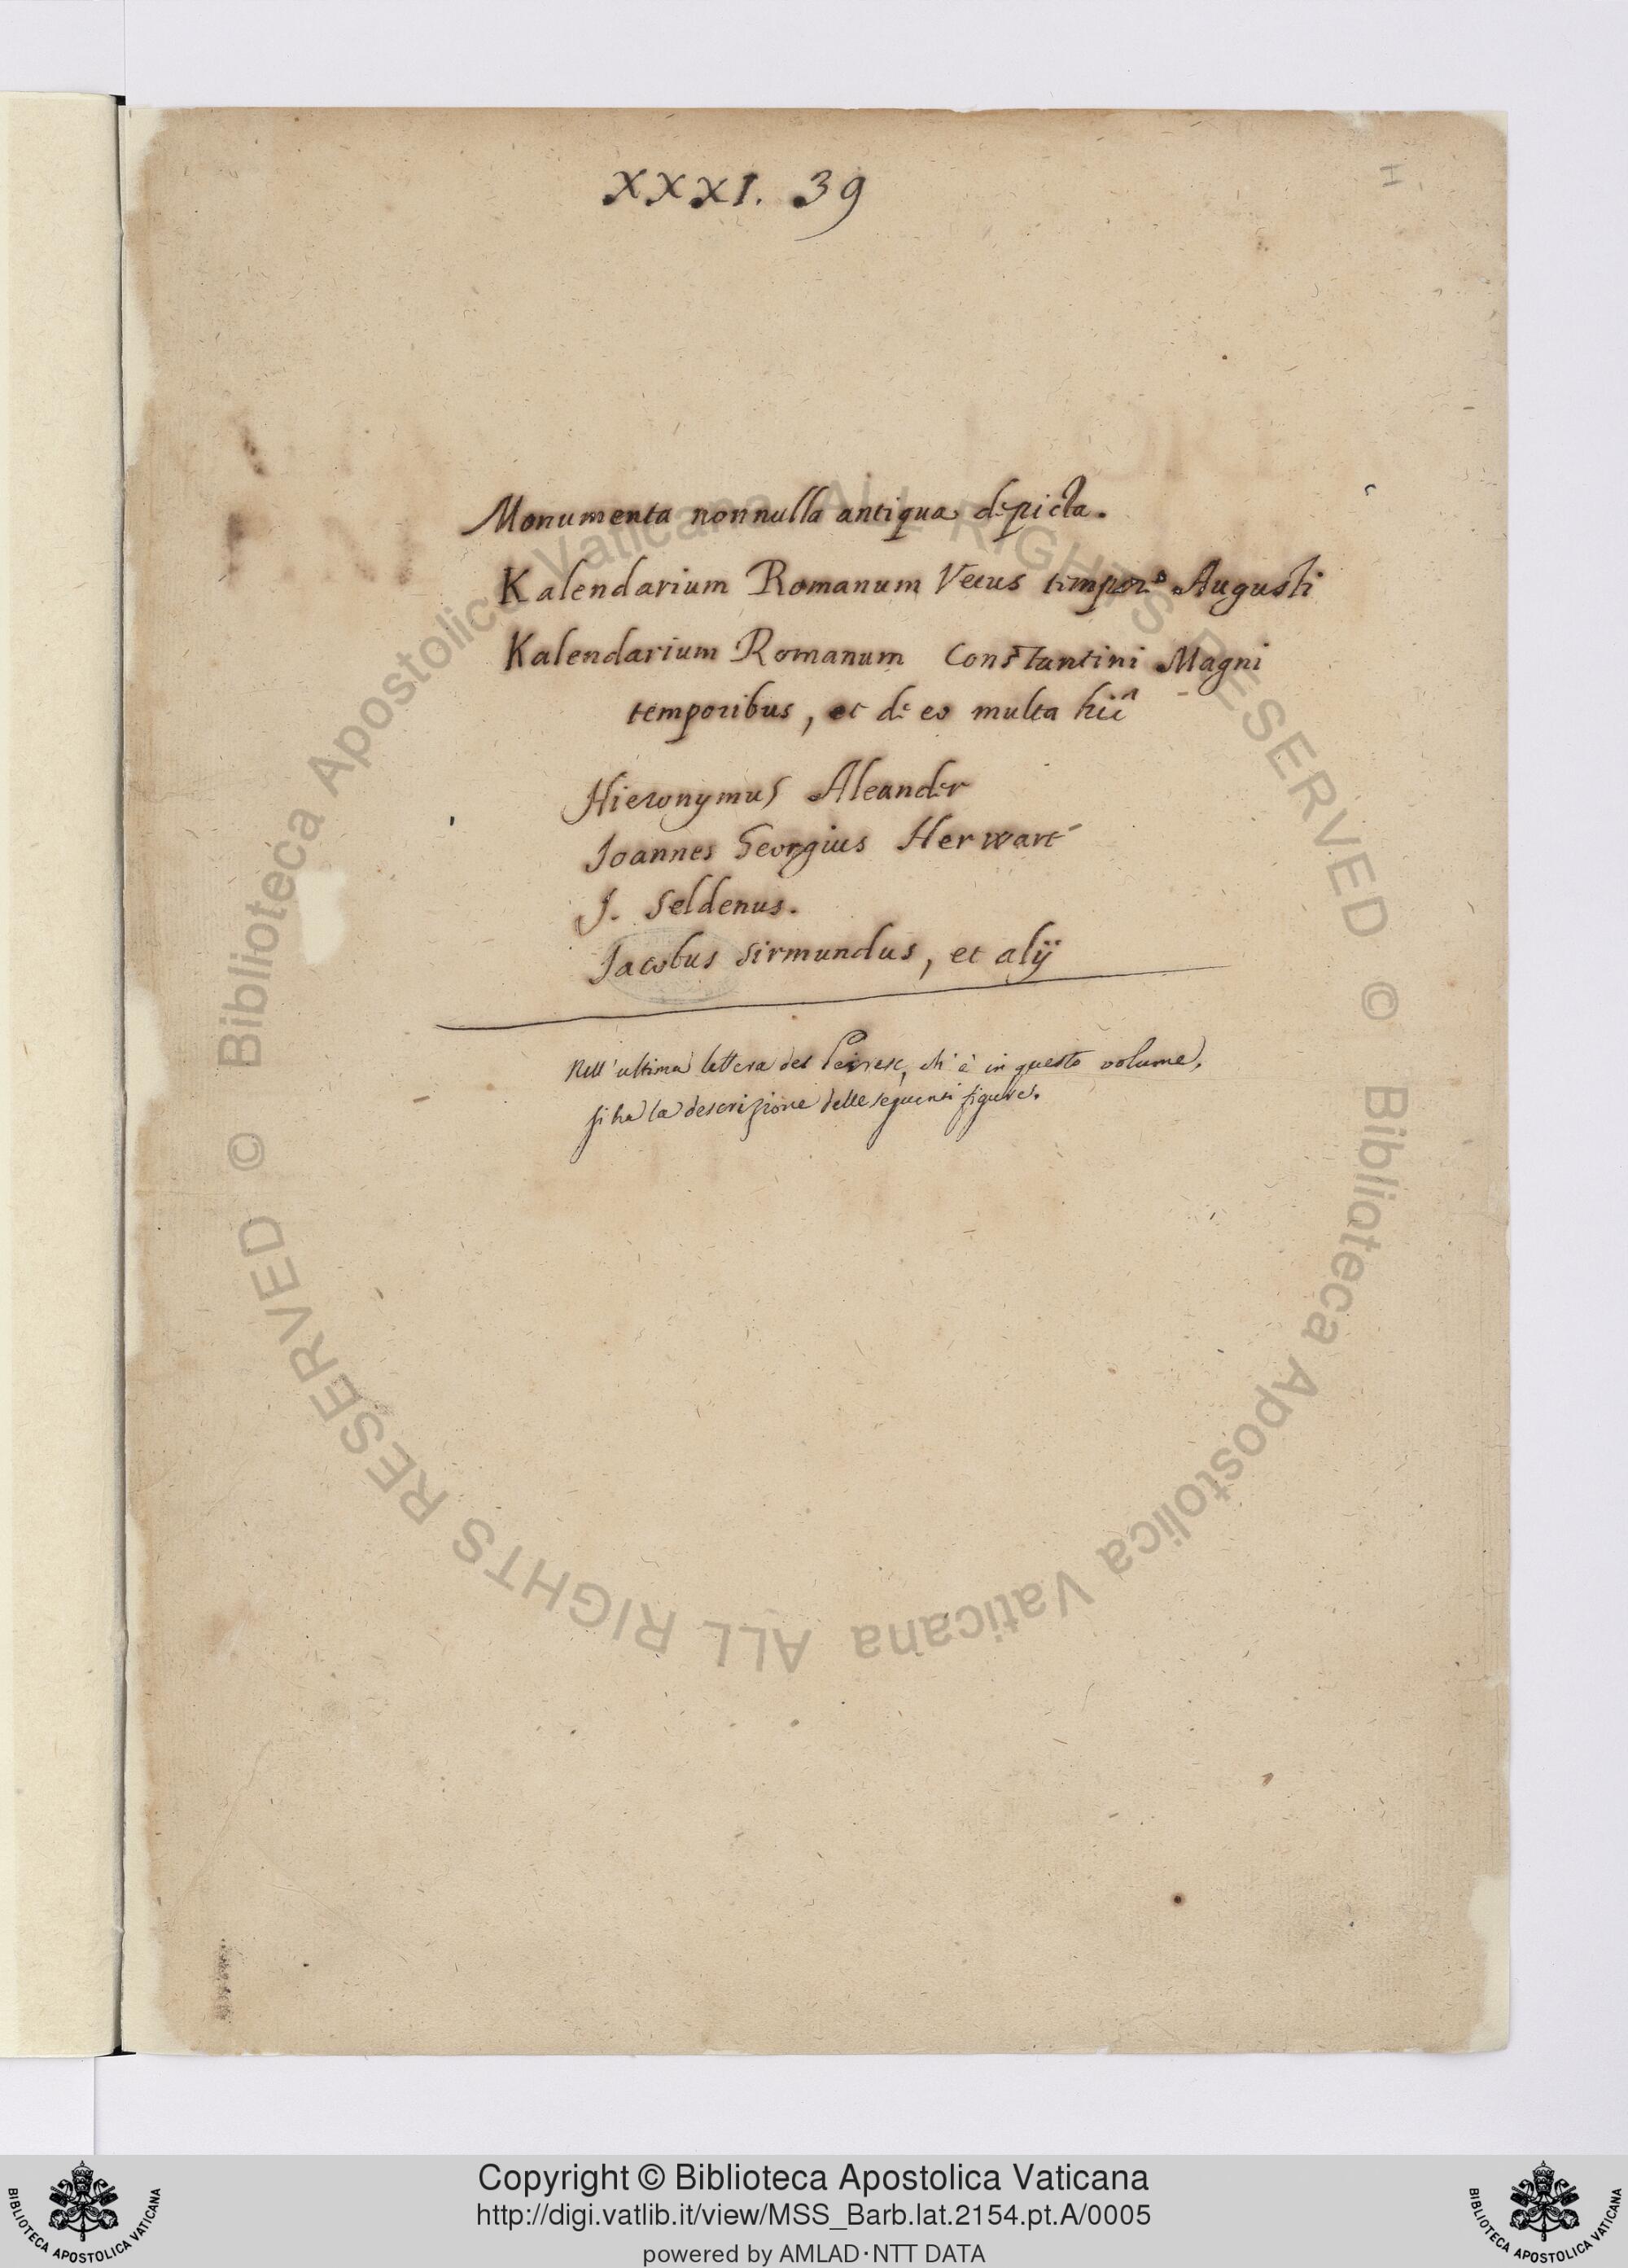 XXXI. 39
I
Monumenta nonnulla antiqua depicta.
Kalendarium Romanum Vetus tempore Augusti
Kalendarium Romanum Constantini Magni
temporibus, et de eo multa
Hieronymus Aleander
Joannes Georgius Herwart
J. Seldenus.
Jacobus Sirmundus, et alÿ
Nell'ultima lettera del Peiresc, ch'è in questo volume,
si ha la descrizione delle sequenti figure.
© Biblioteca Apostolica Vaticana ALL RIGHTS RESERVED
© Biblioteca Apostolica Vaticana ALL RIGHTS RESERVED
Copyright © Biblioteca Apostolica Vaticana
http://digi.vatlib.it/view/MSS_Barb.lat.2154.pt.A/0005
powered by AMLAD·NTT DATA
BIBLIOTECA APOSTOLICA VATICANA
BIBLIOTECA APOSTOLICA VATICANA